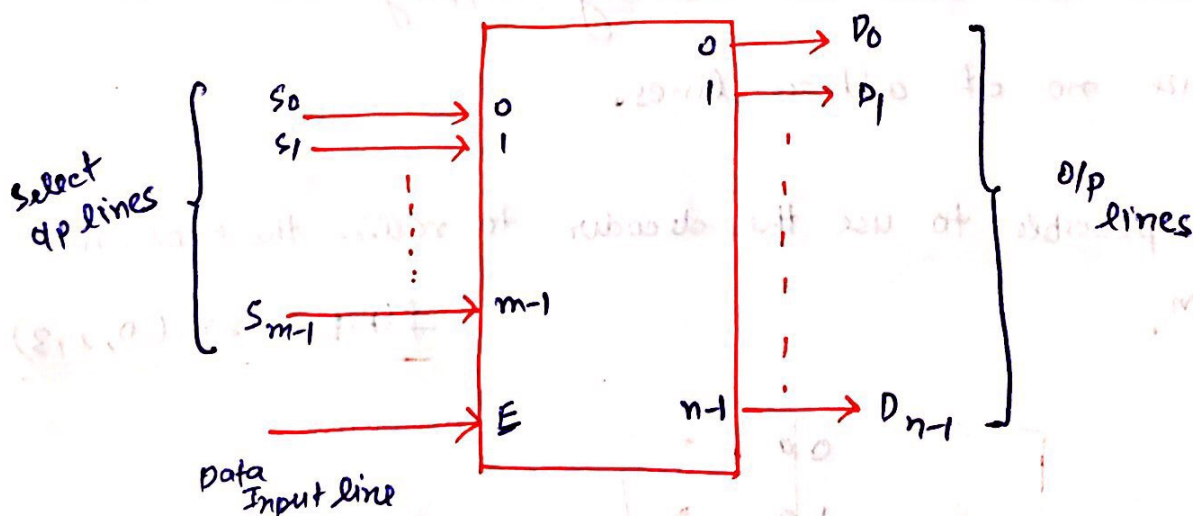 Select
i/p lines
S0
S1
Sm-1
Data
Input line
0
1
m-1
E
0
1
n-1
D0
D1
Dn-1
O/P
lines